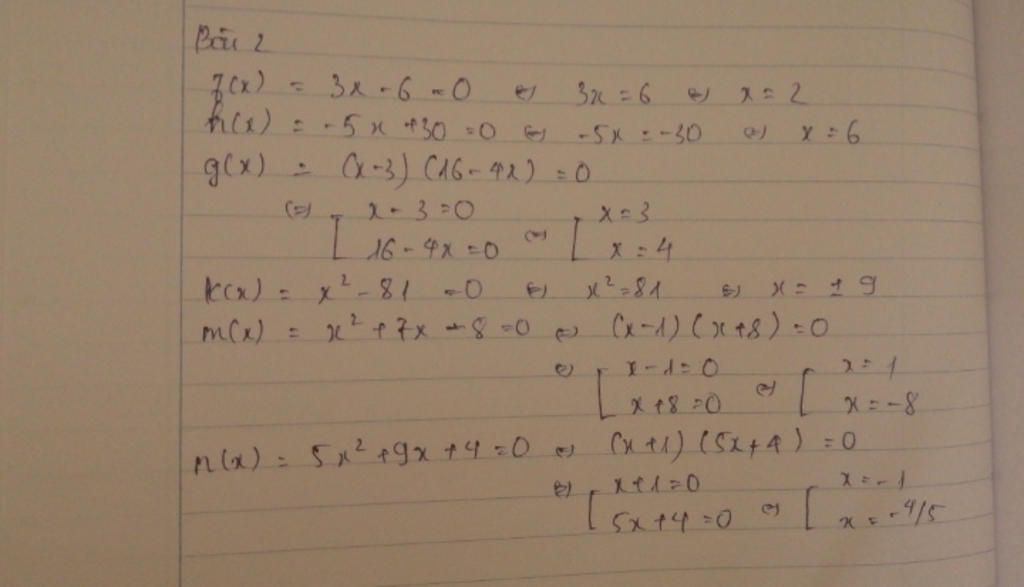 Bài 2
f(x) = 3x - 6 = 0 ⇔ 3x = 6 ⇔ x = 2
h(x) = -5x + 30 = 0 ⇔ -5x = -30 ⇔ x = 6
g(x) = (x-3) (16 - 4x) = 0
⇔ [ x - 3 = 0 ⇔ [ x = 3
16 - 4x = 0 x = 4
k(x) = x² - 81 = 0 ⇔ x² = 81 ⇔ x = ± 9
m(x) = x² + 7x - 8 = 0 ⇔ (x-1) (x+8) = 0
⇔ [ x - 1 = 0 ⇔ [ x = 1
x + 8 = 0 x = -8
n(x) = 5x² + 9x + 4 = 0 ⇔ (x+1) (5x+4) = 0
⇔ [ x + 1 = 0 ⇔ [ x = -1
5x + 4 = 0 x = -4/5